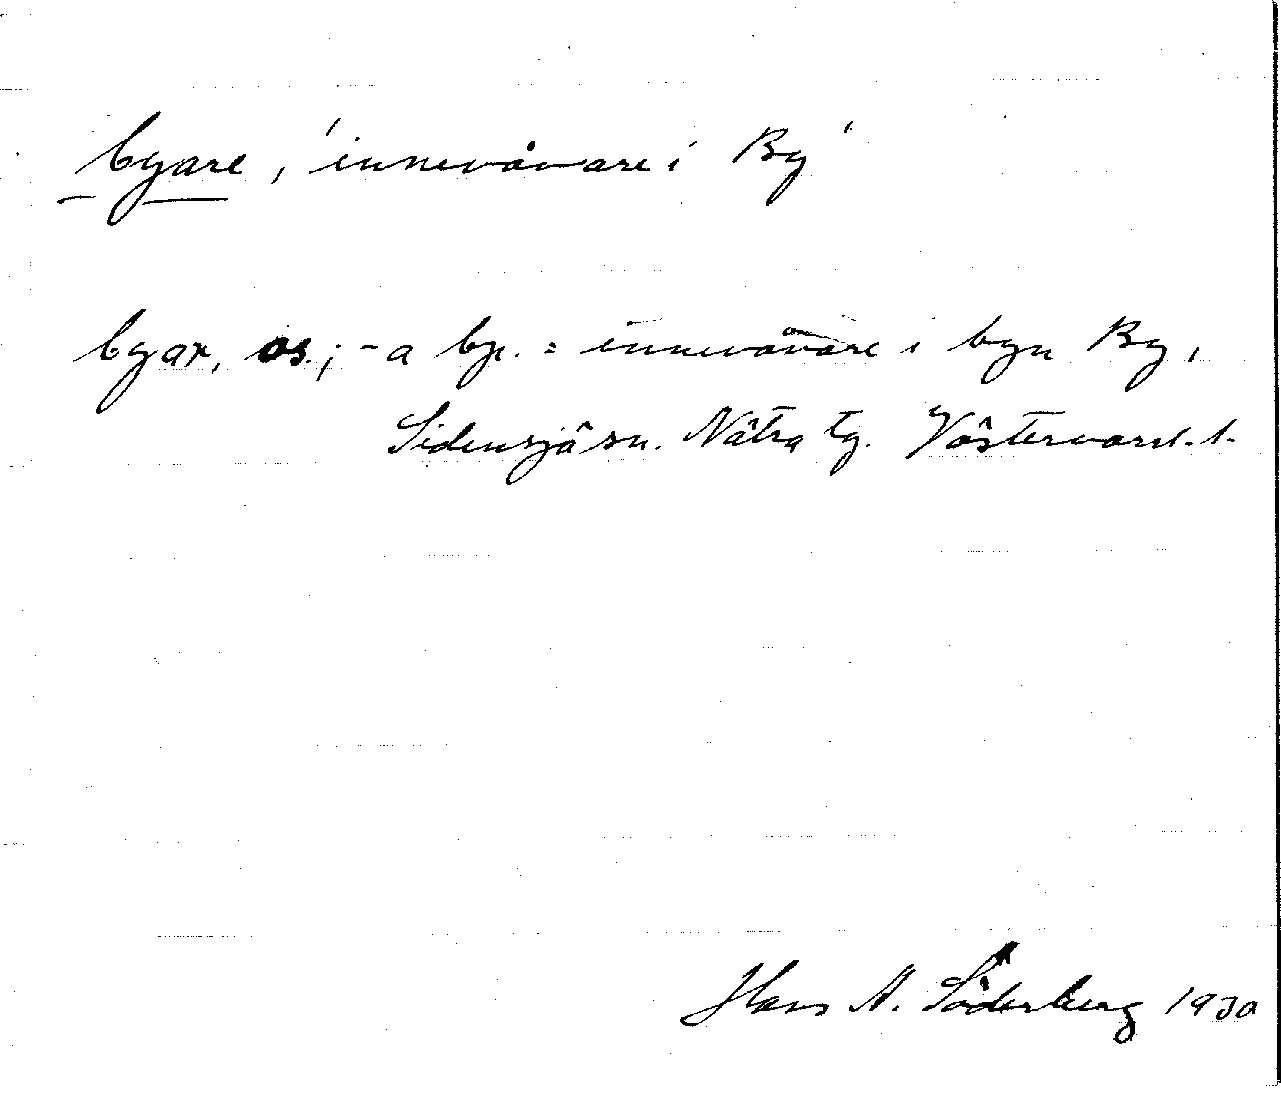 byare, 'innevånare i By'
byar, os.; -a bp. = innevånare i byn By,
Sidensjö sn. Nätra tg. Västernorrl. l.
Hans A. Söderberg 1930